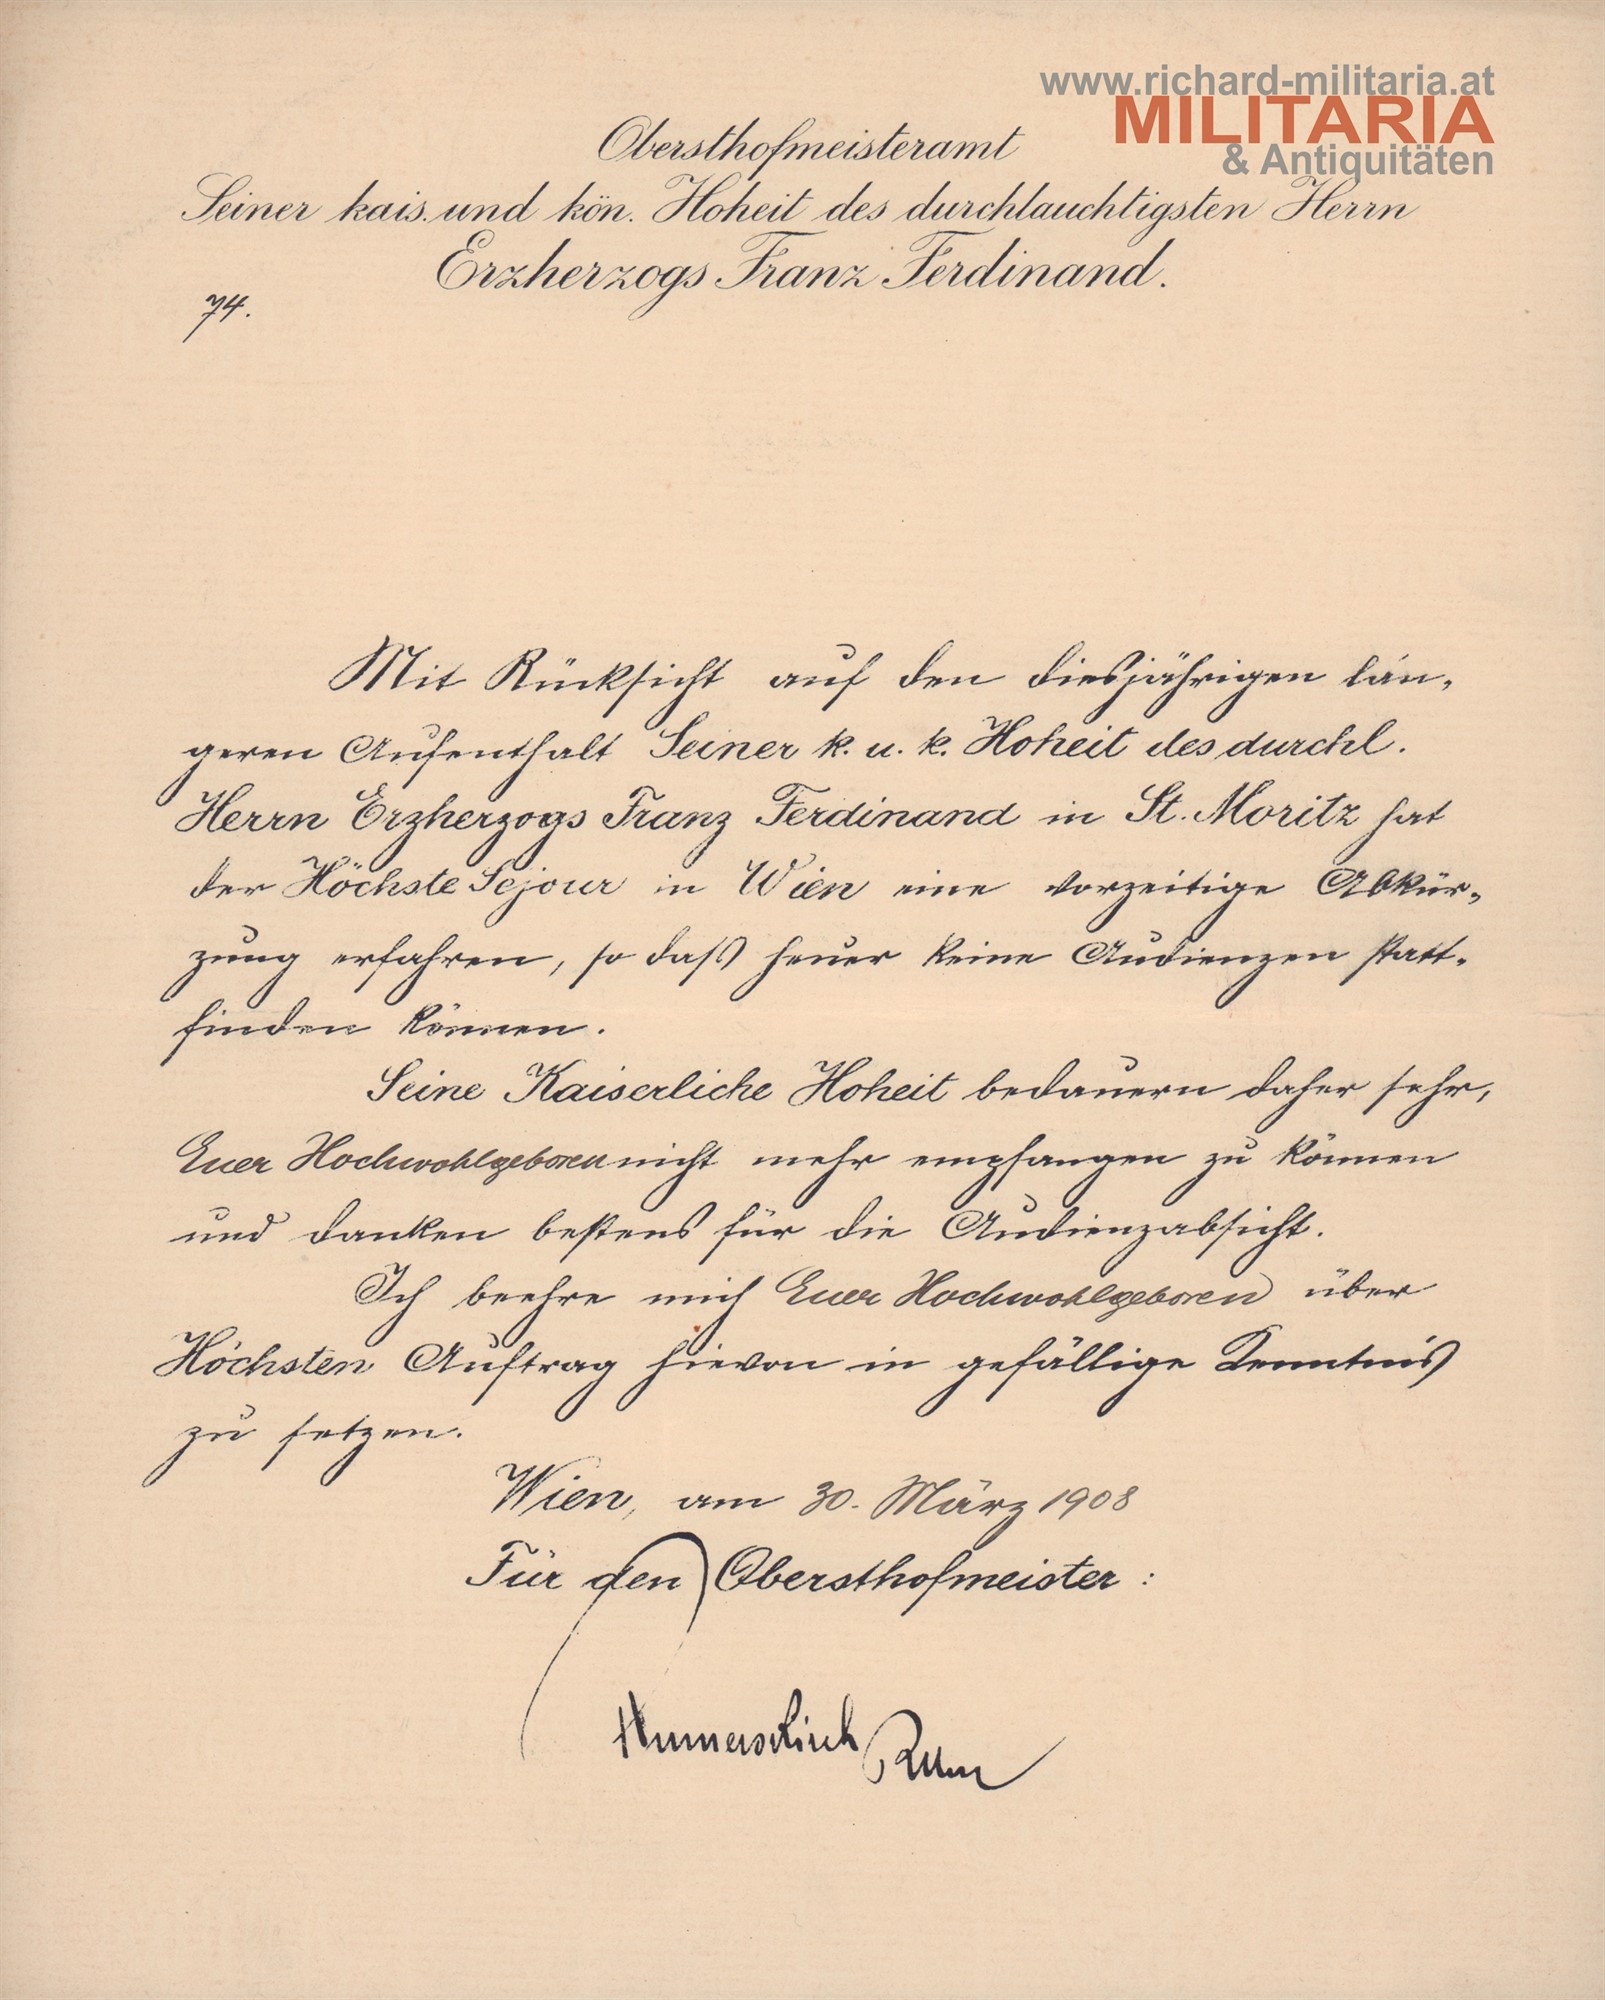 www.richard-militaria.at
MILITARIA
& Antiquitäten
Obersthofmeisteramt
Seiner kais. und kön. Hoheit des durchlauchtigsten Herrn
Erzherzogs Franz Ferdinand.
74.
Mit Rücksicht auf den diesjährigen län-
geren Aufenthalt Seiner k. u. k. Hoheit des durchl.
Herrn Erzherzogs Franz Ferdinand in St. Moritz hat
der Höchste Sejour in Wien eine vorzeitige Abkür-
zung erfahren, so daß heuer keine Audienzen statt-
finden können.
Seine Kaiserliche Hoheit bedauern daher sehr,
Euer Hochwohlgeboren nicht mehr empfangen zu können
und danken bestens für die Audienzabsicht.
Ich beehre mich Euer Hochwohlgeboren über
Höchsten Auftrag hievon in gefällige Kenntnis
zu setzen.
Wien, am 30. März 1908
Für den Obersthofmeister: